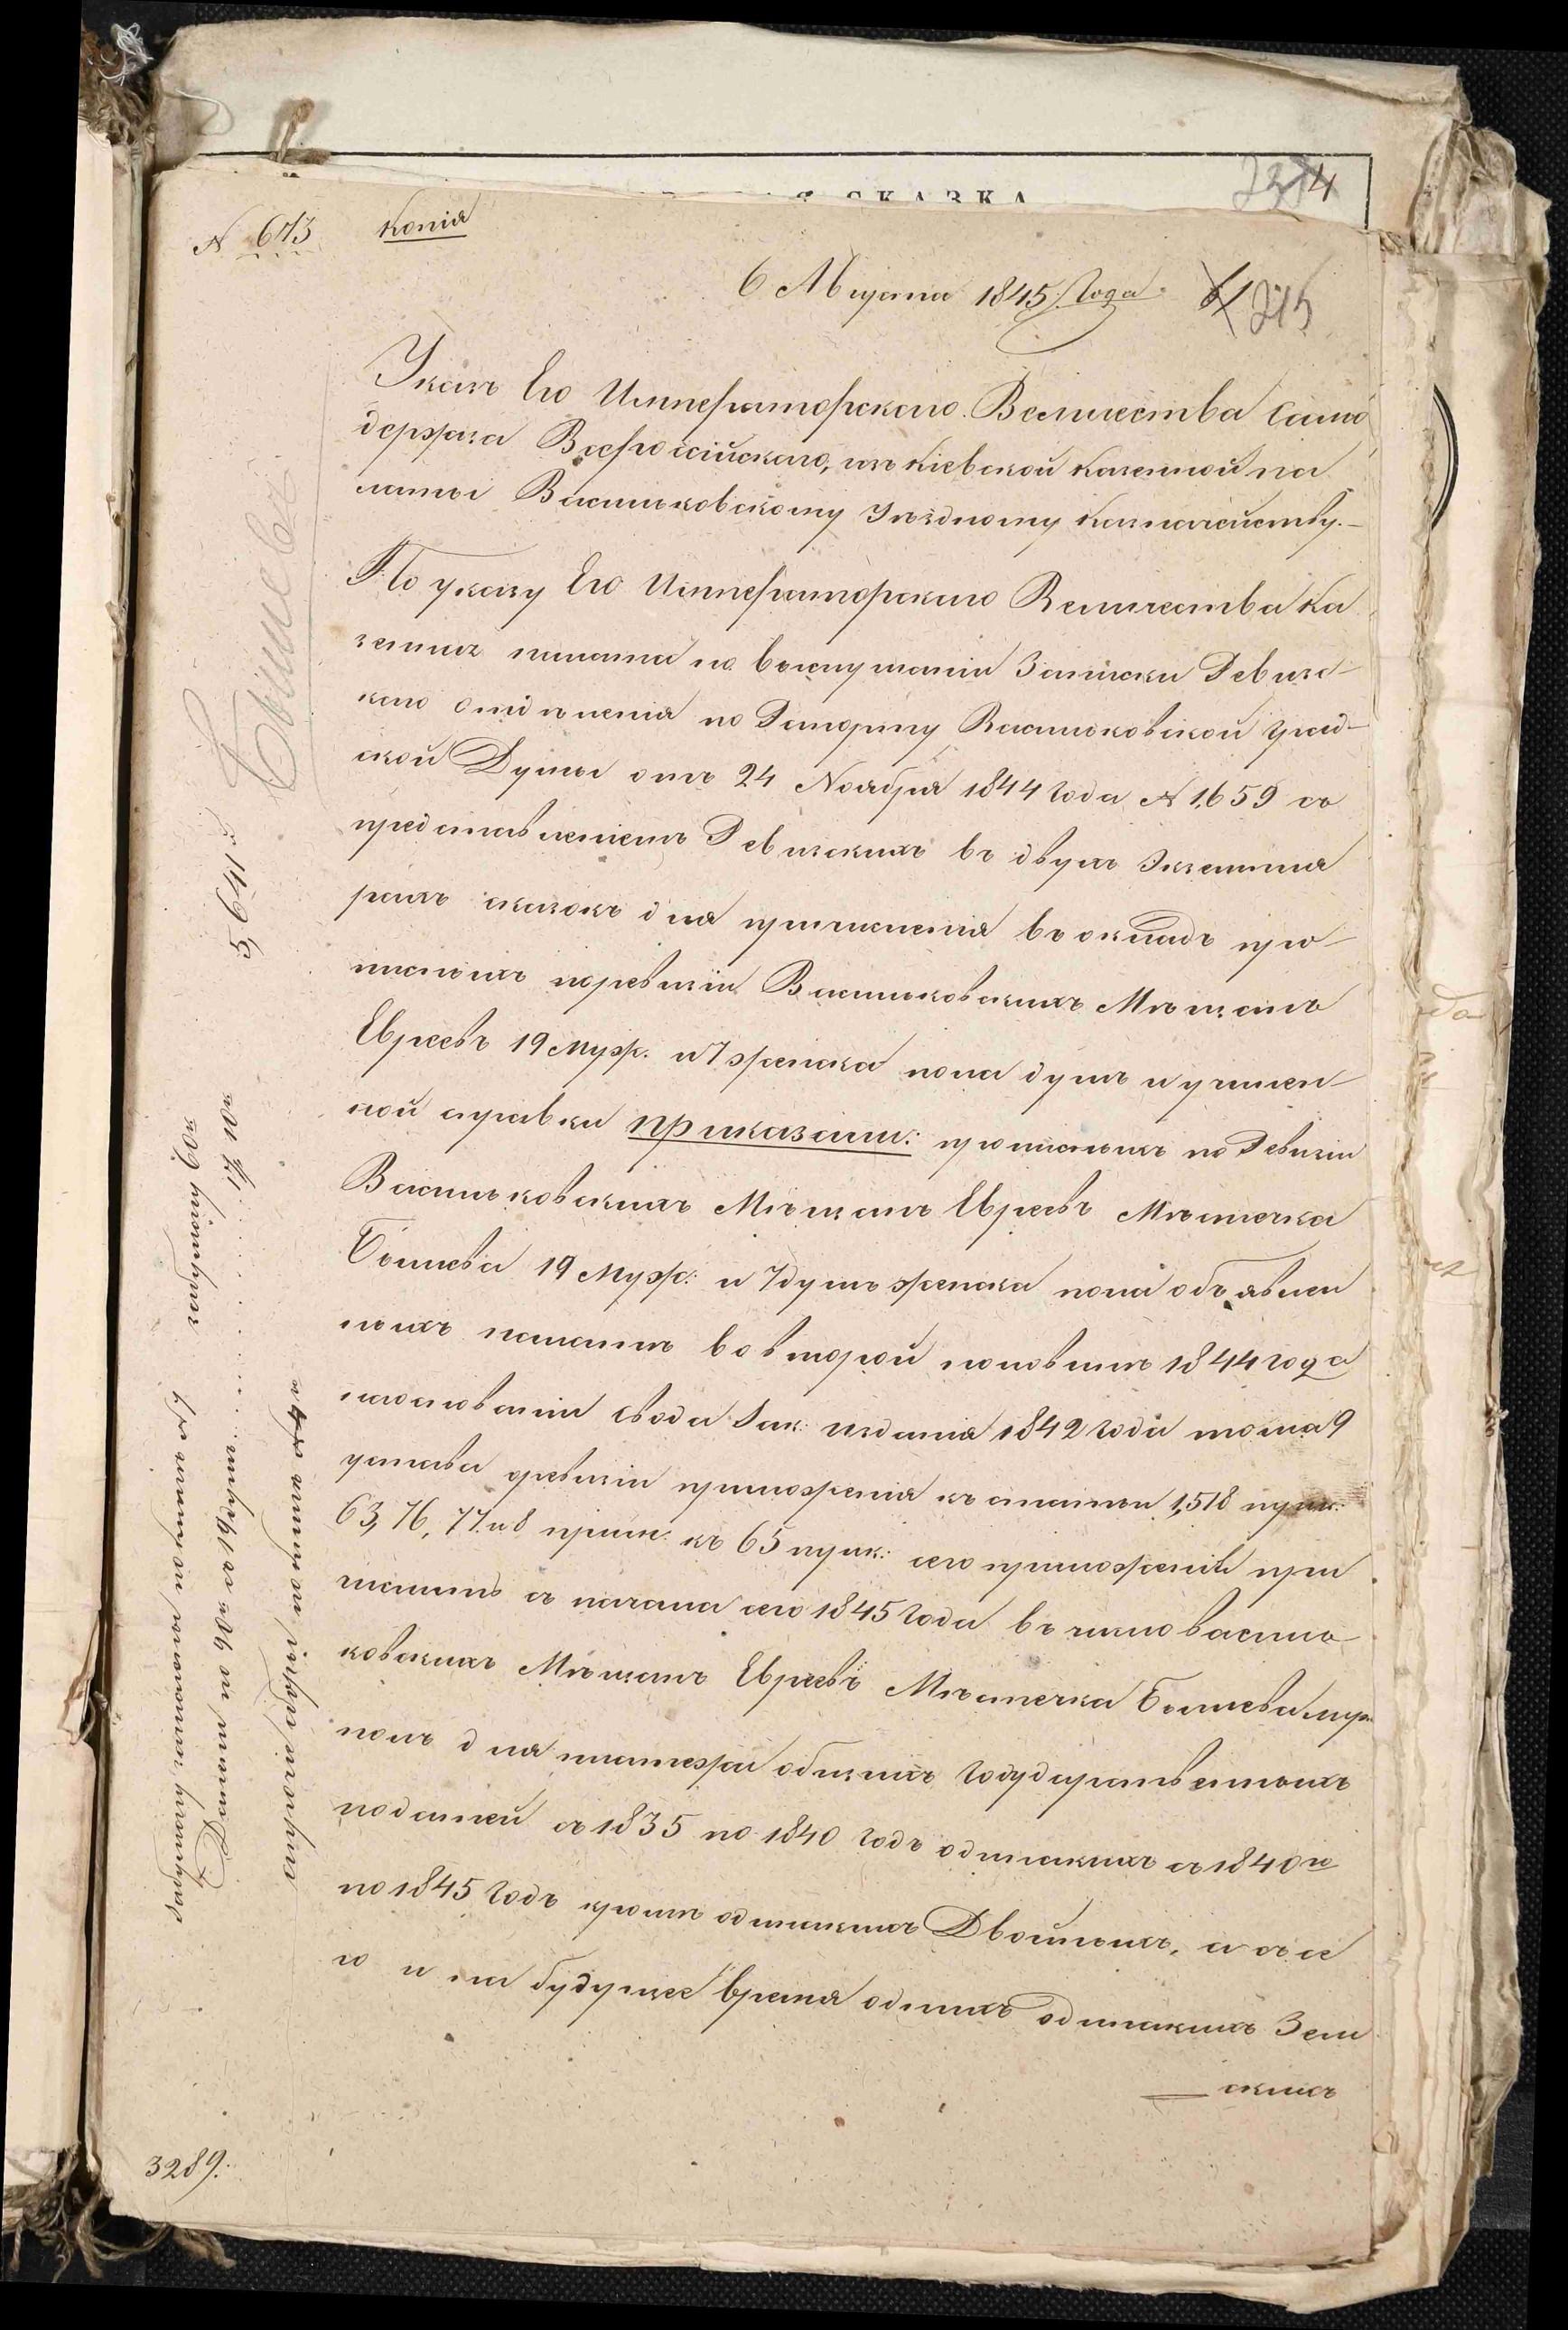 СКАЗКА
4
N 673
Копія
6 Марта 1845 года
215
Указъ Его Императорскаго Величества Само
держца Всероссійскаго, изъ Кіевской Казенной па
латы Васильковскому Уѣздному Казначейству.—
По указу Его Императорскаго Величества Ка
зенная палата по выслушаніи Записки Ревизс-
каго отдѣленія по Рапорту Васильковской Град-
ской Думы отъ 24 Ноября 1844 года N 1,659 съ
представленіемъ Ревизскихъ въ двухъ Экземпля
рахъ сказокъ для причисленія въ окладъ про-
писныхъ по ревизіи Васильковскихъ Мѣщанъ
Евреевъ 19 муж. и 7 женска пола душъ и учинен-
ной справки приказали: прописныхъ по Ревизіи
Васильковскихъ Мѣщанъ Евреевъ Мѣстечка
Бышева 19 муж: и 7 душъ женска пола объявлен
ныхъ палатѣ во второй половинѣ 1844 года
на основаніи Свода Зак: изданія 1842 года тома 9
устава о ревизіи приложенія къ статьи 1,518 пунк:
63, 76, 77 и 8 прим. къ 65 пунк: сего приложенія при
числить съ начала сего 1845 года въ число Василь
ковскихъ Мѣщанъ Евреевъ Мѣстечка Бышева
полъ для платежа общихъ Государственныхъ
податей съ 1835 по 1840 годъ одинакихъ съ 1840 го
по 1845 годъ кромѣ одинакихъ Двойныхъ, а съ се
го и на будущее время однихъ одинакихъ Зем
скихъ
Бышевъ
1495
3289.